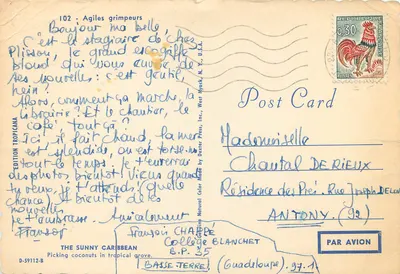 102 - Agiles grimpeurs
Bonjour ma belle
C'est le stagiaire d'chez
Plisson, le grand escogriffe
blond, qui vous envoie de
ses nouvelles : c'est gentil,
hein ?
Alors, comment ça marche, la
librairie ? Et le chantier, le
café, tout ça ?
Ici il fait chaud, la mer
est splendide, on est
tout le temps. Je t'enverrai
des photos bientôt. Viens quand
tu veux, je t'attends ! (quelle
chance). A bientôt de tes
nouvelles.
Je t'embrasse. Amicalement
François
EDITION TROPICANA
Post Card
0,30
Mademoiselle
Chantal DERIEUX
Résidence des Prés. Rue Joseph
ANTONY. (92)
PAR AVION
THE SUNNY CARIBBEAN
Picking coconuts in tropical grove.
D-59112-B
François CHAPPE
Collège BLANCHET
B.P. 35
BASSE TERRE (Guadeloupe) 97.1